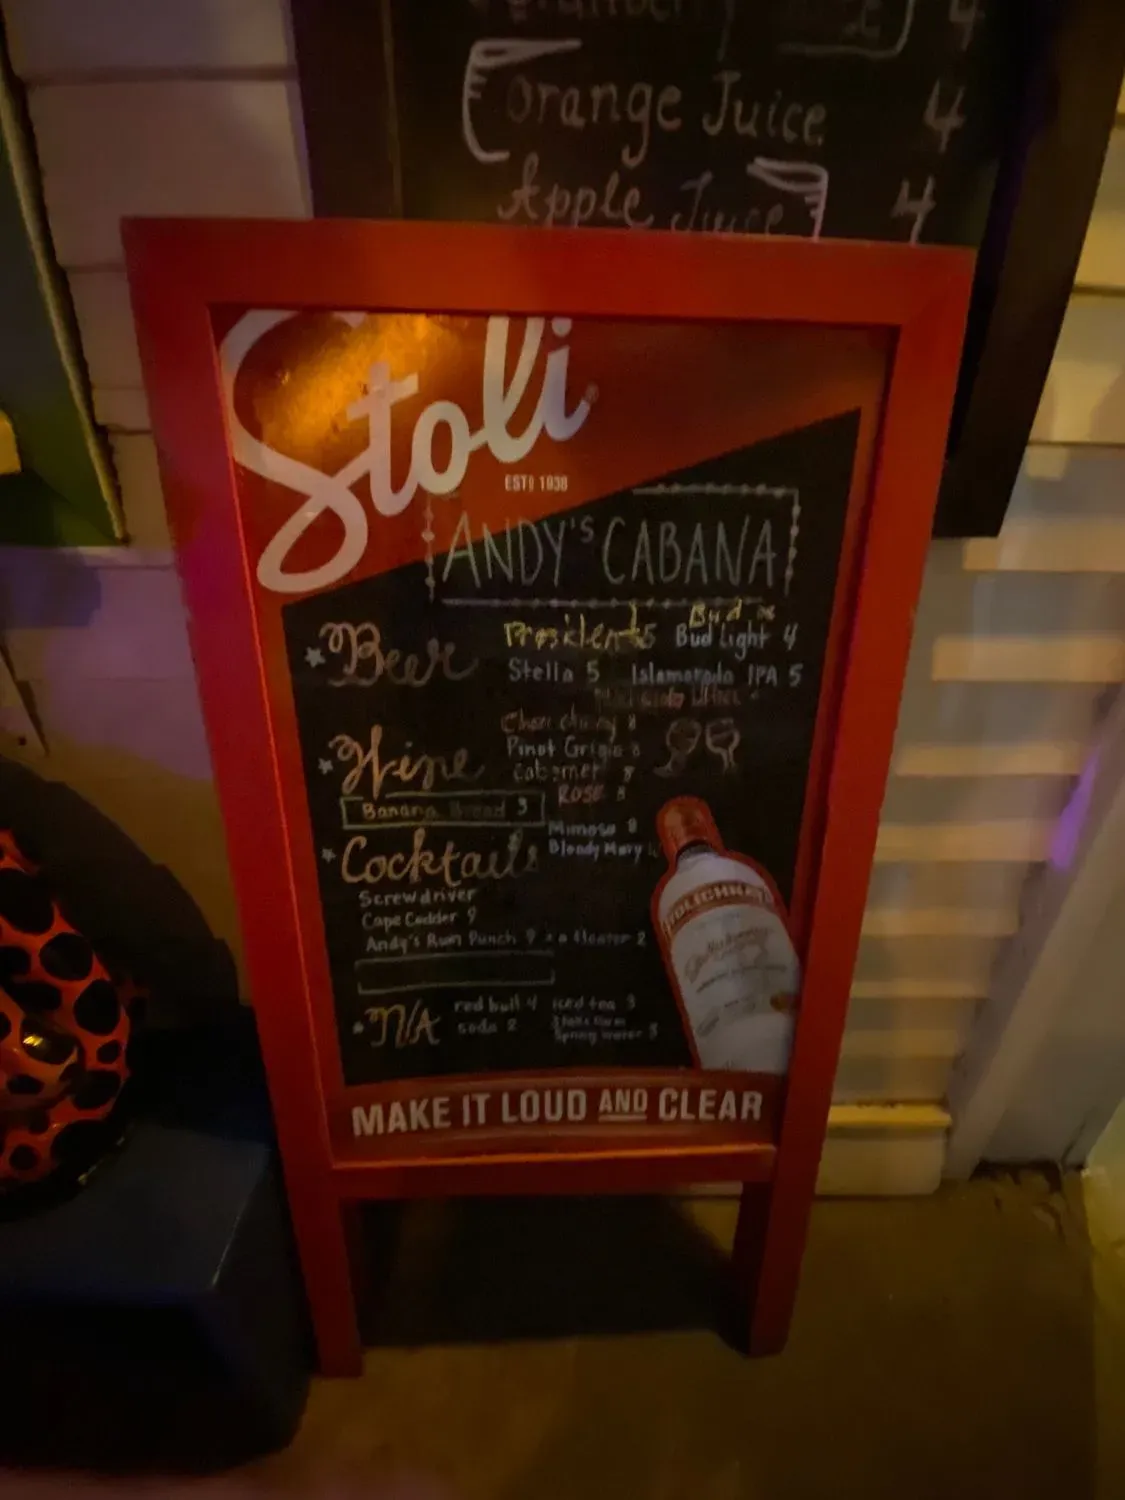 4
Orange Juice 4
Apple Juice 4
Stoli
ESTD 1938
ANDY'S CABANA
Beer
Presidente 5 Bud Light 4
Stella 5 Islamorada IPA 5
Wine
8
Pinot Grigio 8
8
ROSE 8
Banana Bread 3
Mimosa 8
Cocktails
Bloody Mary
Screwdriver
Cape Codder 9
Andy's Rum Punch 9
floater 2
N/A
red bull 4 iced tea 3
soda 2
Spring water 3
MAKE IT LOUD AND CLEAR